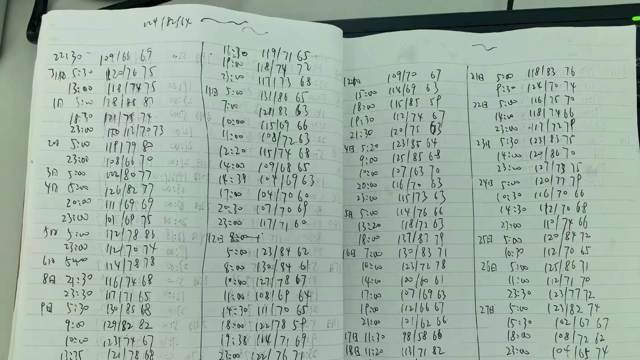 124/82/64
22:30 109/66 69
31日 5:30 120/76 75
13:00 118/74 75
1日 5:00 128/88 87
18:30 121/78 74
23:00 110/70 73
2日 5:00 118/79 80
23:00 108/66 70
3日 5:00 102/80 77
4日 5:00 126/82 77
20:00 111/69 69
23:00 101/69 75
5日 5:00 132/78 86
23:00 112/70 74
6日 5:00 124/78 78
8日 21:30 116/74 68
23:30 117/71 65
9日 5:30 130/85 68
9:00 129/82 82
10:00 123/74 67
121/78 68
11:30 119/71 65
19:00 118/74 72
23:00 117/73 68
11日 5:00 131/86 65
7:00 128/83 63
10:00 115/69 66
11:00 108/72 63
12:20 115/74 68
14:00 109/68 65
14:39 104/69 63
17:00 104/70 60
20:30 107/70 69
23:00 117/71 60
12日
5:00 123/84 62
8:00 130/84 61
10:00 127/78 67
11:00 108/69 64
14:30 111/70 65
18:00 122/78 59
17:38 114/71 69
23:00 122/76 71
109/70 67
15:00 114/69 63
18:00 115/85 59
19:30 112/74 67
21:30 120/75 63
4日 5:20 123/85 64
9:00 125/85 68
10:00 107/63 70
20:00 116/70 63
23:00 115/73 63
5日 5:00 114/76 66
13:20 118/72 63
18:00 137/87 79
16日 7:00 130/83 71
10:00 122/72 78
14:00 100/60 61
17:00 107/69 63
19:00 112/66 67
21:00 121/62 66
17日 11:30 98/58 66
18日 11:20 113/71 82
21日 5:00 118/83 76
9:30 124/70 74
22日 5:00 116/75 70
14:00 118/74 66
23:00 117/72 79
23日 5:30 123/83 75
14:00 124/86 70
23:00 127/73 75
24日 5:00 120/77 79
10:30 116/70 66
14:30 112/70 68
23:00 110/74 66
25日 5:00 120/84 72
10:30 112/70 65
26日 5:00 125/86 71
11:00 112/71 70
23:30 123/77 72
27日 5:00 123/82 74
15:30 102/67 67
18:00 108/72 62
23:00 104/68 74